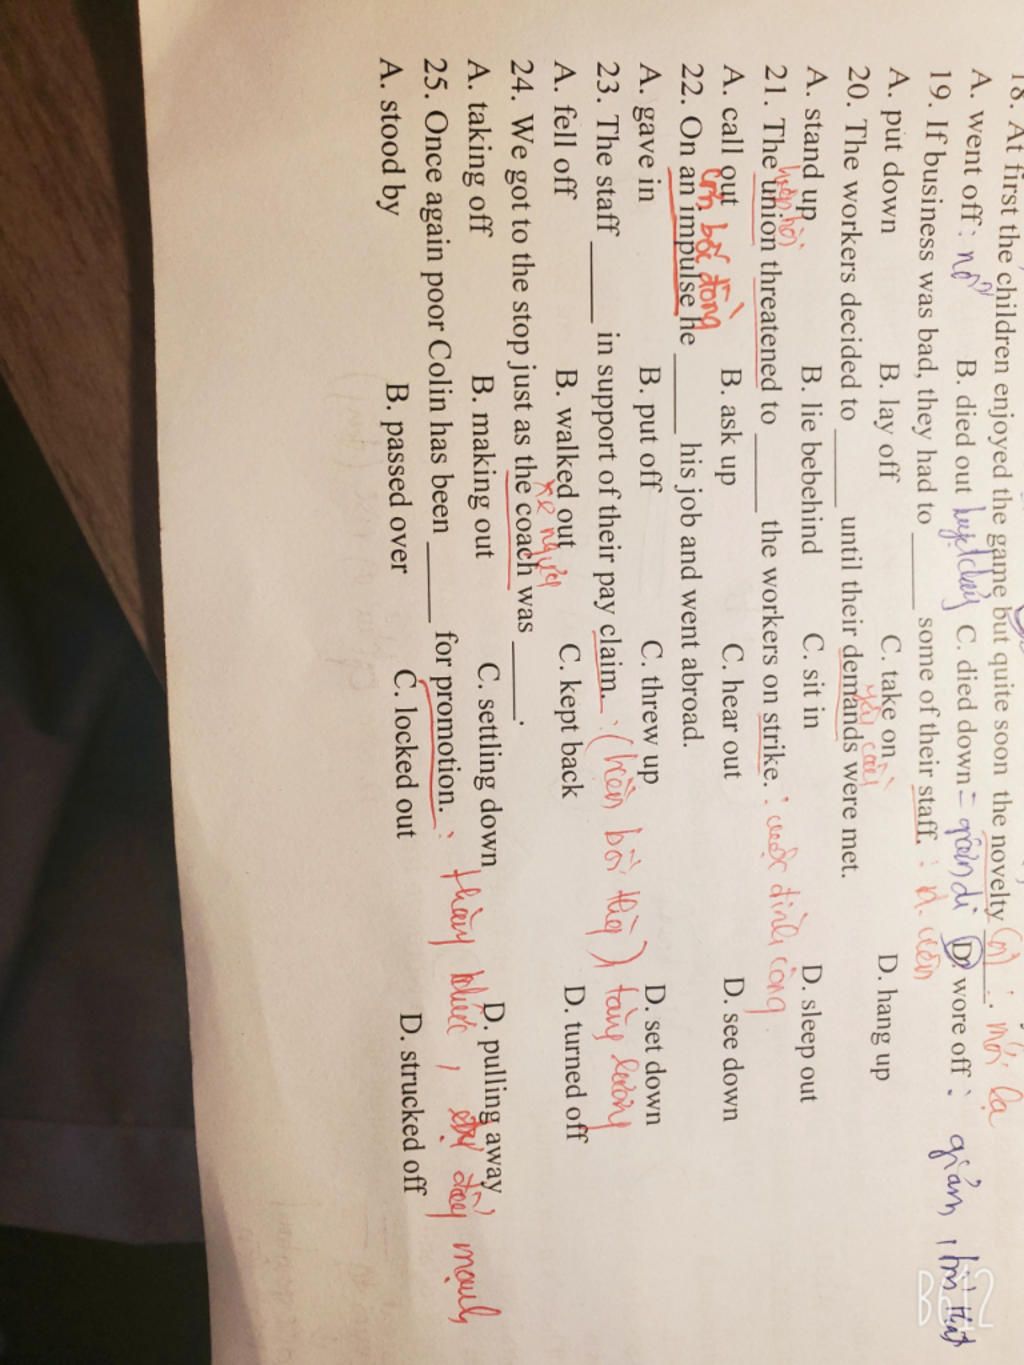 18. At first the children enjoyed the game but quite soon the novelty ______. (n) : mới lạ
A. went off : nổ B. died out C. died down = D. wore off :
19. If business was bad, they had to ______ some of their staff. :
A. put down B. lay off C. take on D. hang up
yêu cầu
20. The workers decided to ______ until their demands were met.
A. stand up B. lie bebehind C. sit in D. sleep out
21. The union threatened to ______ the workers on strike. : cuộc đình công
A. call out B. ask up C. hear out D. see down
cơn bốc đồng
22. On an impulse he ______ his job and went abroad.
A. gave in B. put off C. threw up D. set down
23. The staff ______ in support of their pay claim. : (tiền bồi thg) tăng lương
A. fell off B. walked out C. kept back D. turned off
xe ngựa
24. We got to the stop just as the coach was ______.
A. taking off B. making out C. settling down D. pulling away
25. Once again poor Colin has been ______ for promotion. : thăng chức, sự đẩy mạnh
A. stood by B. passed over C. locked out D. strucked off
B612